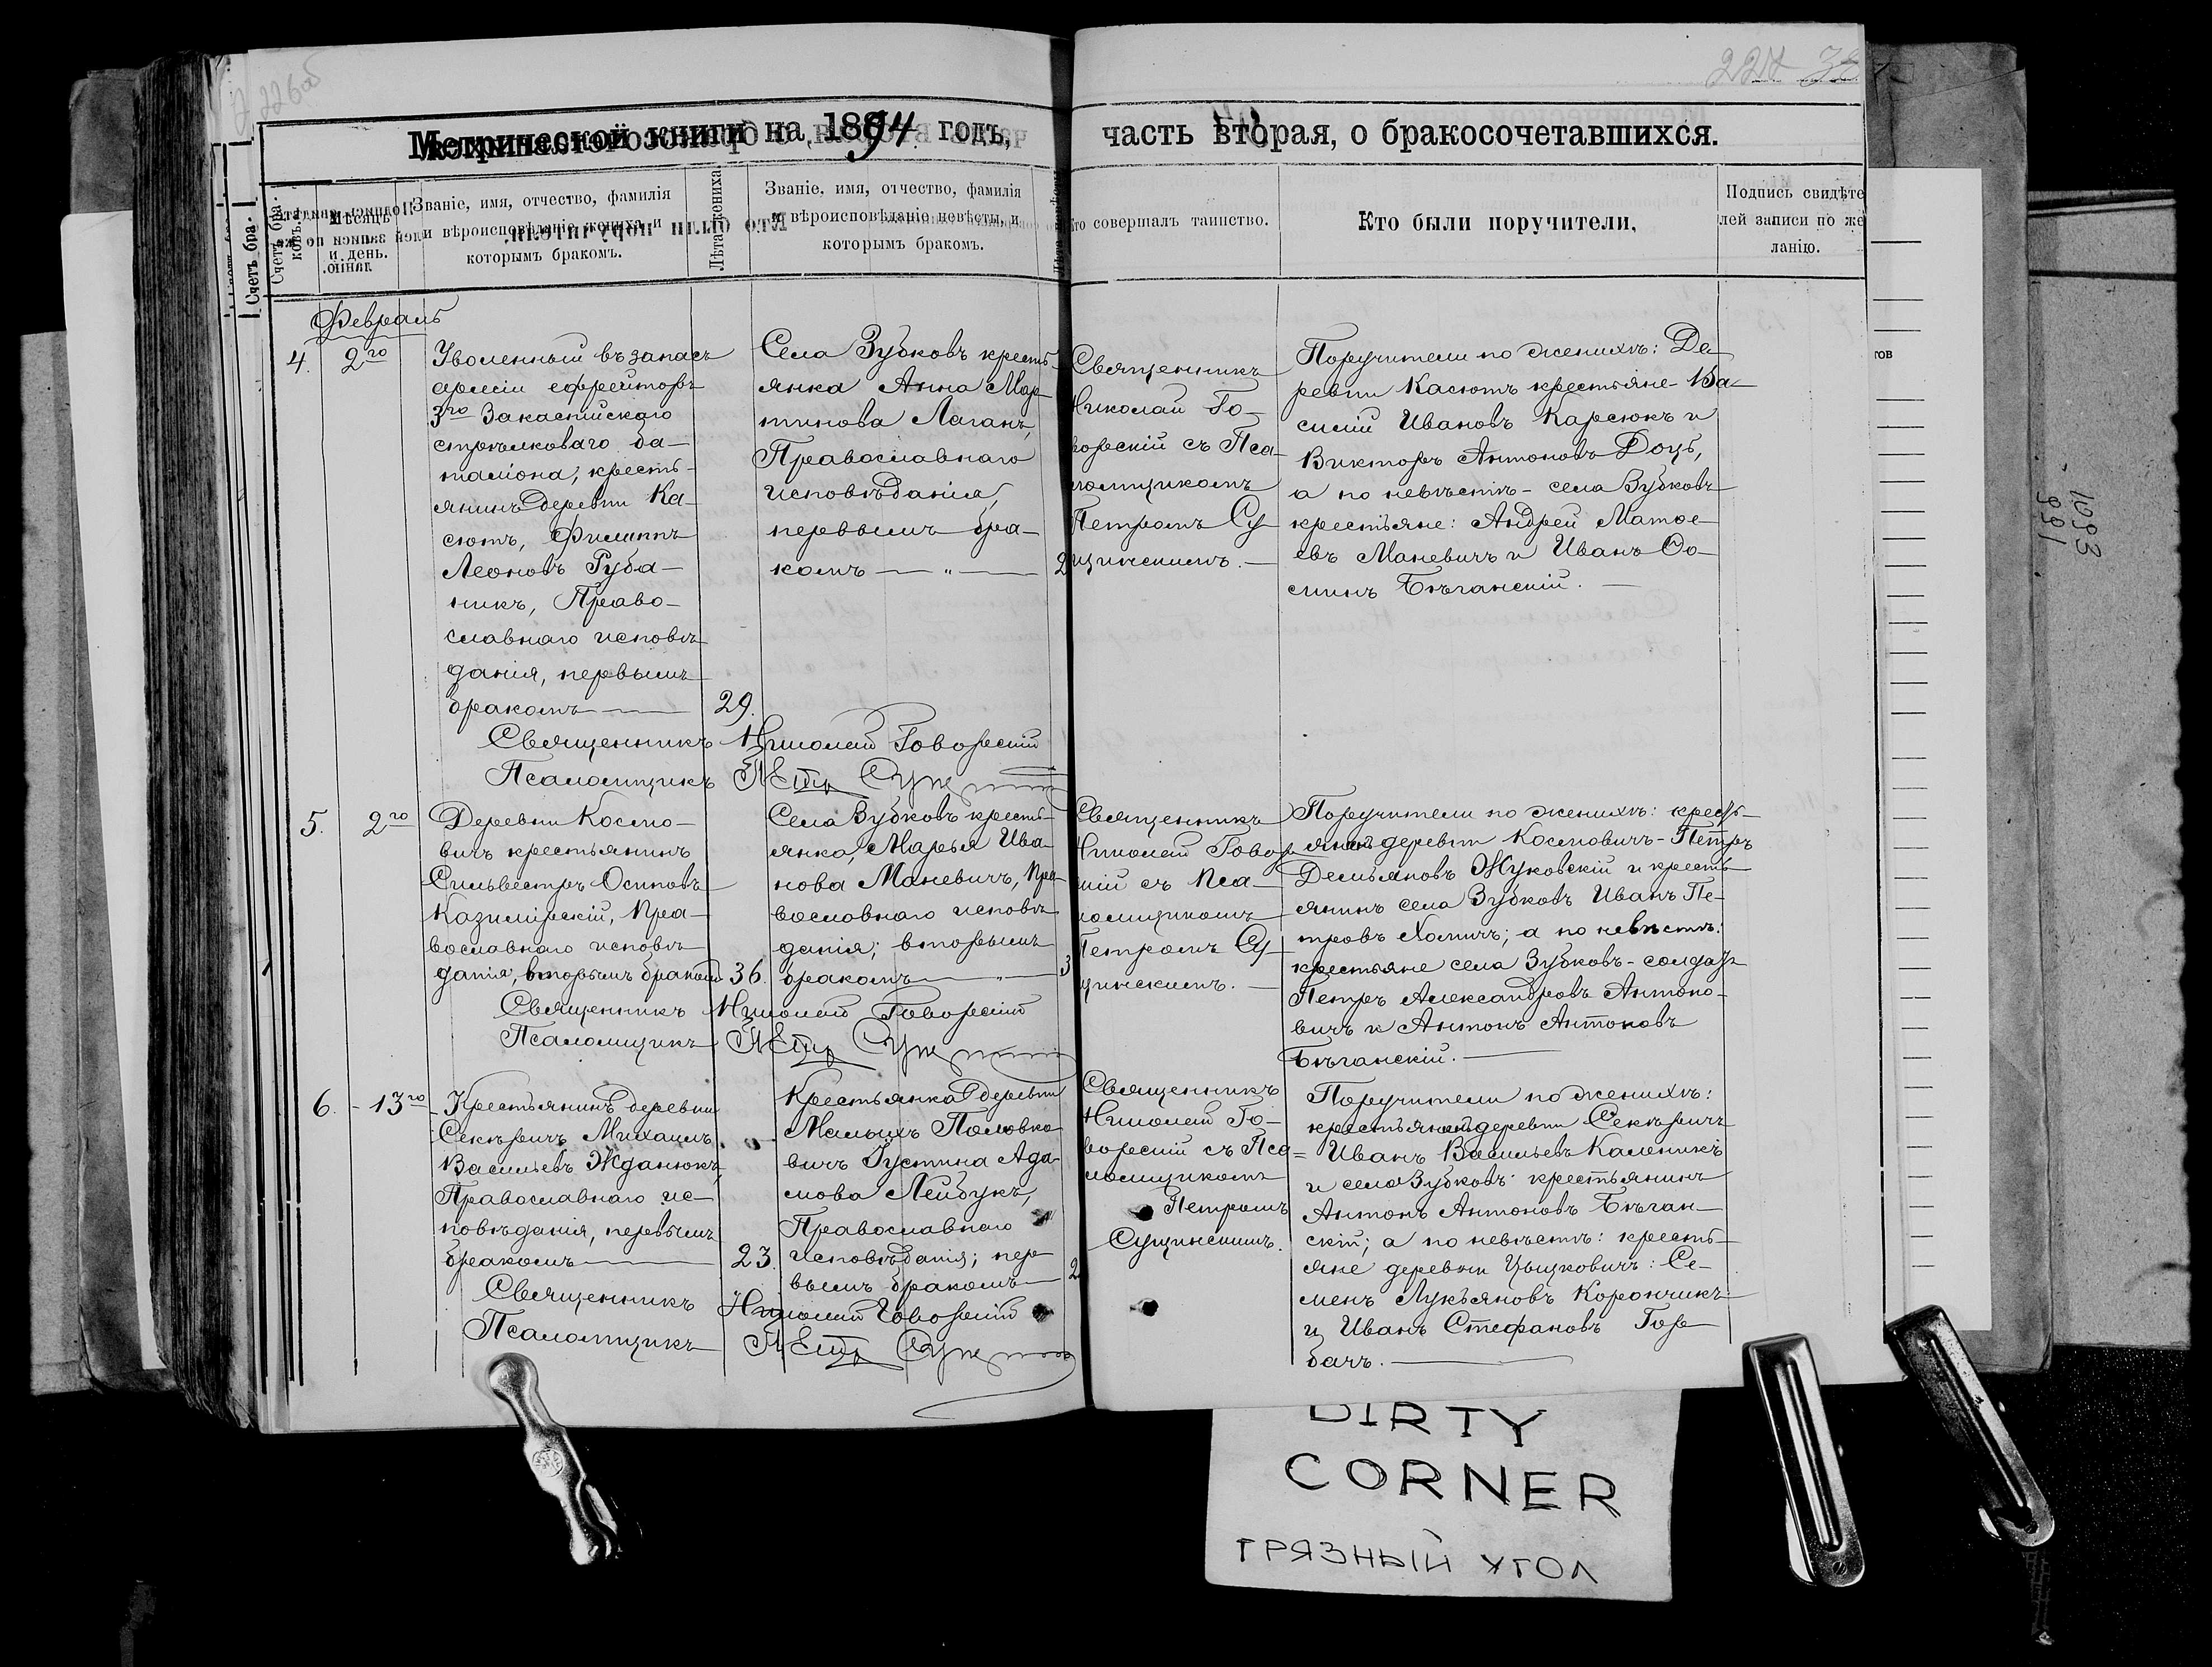 226об
227 
Метрической книги на 1894 годъ,
часть вторая, о бракосочетавшихся.
Счетъ бра-
ковъ.
Мѣсяцъ
и день.
Званіе, имя, отчество, фамилія
и вѣроисповѣданіе жениха, и
которымъ бракомъ.
Лѣта жениха
Званіе, имя, отчество, фамилія
и вѣроисповѣданіе невѣсты, и
которымъ бракомъ.
Кто совершалъ таинство.
Кто были поручители.
Подпись свидѣте
лей записи по же
ланію.
Февраль
4.
2го
Уволенный въ запасъ
арміи ефрейторъ
3го Закаспійскаго
стрѣлковаго ба-
таліона, кресть-
янинъ деревни Ка-
сютъ, Филиппъ
Леоновъ Руба-
никъ, Право-
славнаго исповѣ-
данія, первымъ
бракомъ
29.
Села Зубковъ кресть-
янка Анна Мар-
тинова Лаганъ,
Православнаго
исповѣданія,
первымъ бра-
комъ — „ —
2
Священникъ
Николай Го-
ворскій съ Пса-
ломщикомъ
Петромъ Су-
щинскимъ.
Поручители по женихѣ: Де-
ревни Касютъ крестьяне - Ва-
силій Ивановъ Карсюкъ и
Викторъ Антоновъ Доцъ,
а по невѣстѣ - села Зубковъ
крестьяне: Андрей Матѳе-
евъ Маневичъ и Иванъ Ѳо-
минъ Бѣганскій.
Священникъ Николай Говорскій
Псаломщикъ Петръ
5.
2го
Деревни Космо-
вичъ крестьянинъ
Сильвестръ Осиповъ
Казимірскій, Пра-
вославнаго исповѣ-
данія, вторымъ бракомъ
36.
Села Зубковъ кресть-
янка, Марья Ива-
нова Маневичъ, Пра-
вославнаго исповѣ-
данія; вторымъ
бракомъ — „ —
3
Священникъ
Николай Говор-
скій съ Пса-
ломщикомъ
Петромъ Су-
щинскимъ.
Поручители по женихѣ: кресть-
янинъ деревни Космовичъ - Петръ
Демьяновъ Жуковскій и кресть-
янинъ села Зубковъ Иванъ Пе-
тровъ Хомичъ; а по невѣстѣ:
крестьяне села Зубковъ - солдатъ
Петръ Александровъ Антоно-
вичъ и Антонъ Антоновъ
Бѣганскій.
Священникъ Николай Говорскій
Псаломщикъ Петръ
6.
13го
Крестьянинъ деревни
Секѣричъ Михаилъ
Васильевъ Жданюкъ,
Православнаго ис-
повѣданія, первымъ
бракомъ
23.
Крестьянка деревни
Малыхъ Половко-
вичъ Густина Ада-
мова Лейбукъ,
Православнаго
исповѣданія; пер-
вымъ бракомъ
2
Священникъ
Николай Го-
ворскій съ Пса-
ломщикомъ
Петромъ
Сущинскимъ.
Поручители по женихѣ:
крестьянинъ деревни Секѣричъ
Иванъ Васильевъ Каленикъ
и села Зубковъ крестьянинъ
Антонъ Антоновъ Бѣган-
скій; а по невѣстѣ: кресть-
яне деревни Цыцковичъ: Се-
менъ Лукьяновъ Корончикъ
и Иванъ Стефановъ Гор-
бачъ.
Священникъ Николай Говорскій
Псаломщикъ Петръ
DIRTY
CORNER
ГРЯЗНЫЙ УГОЛ
1093
991